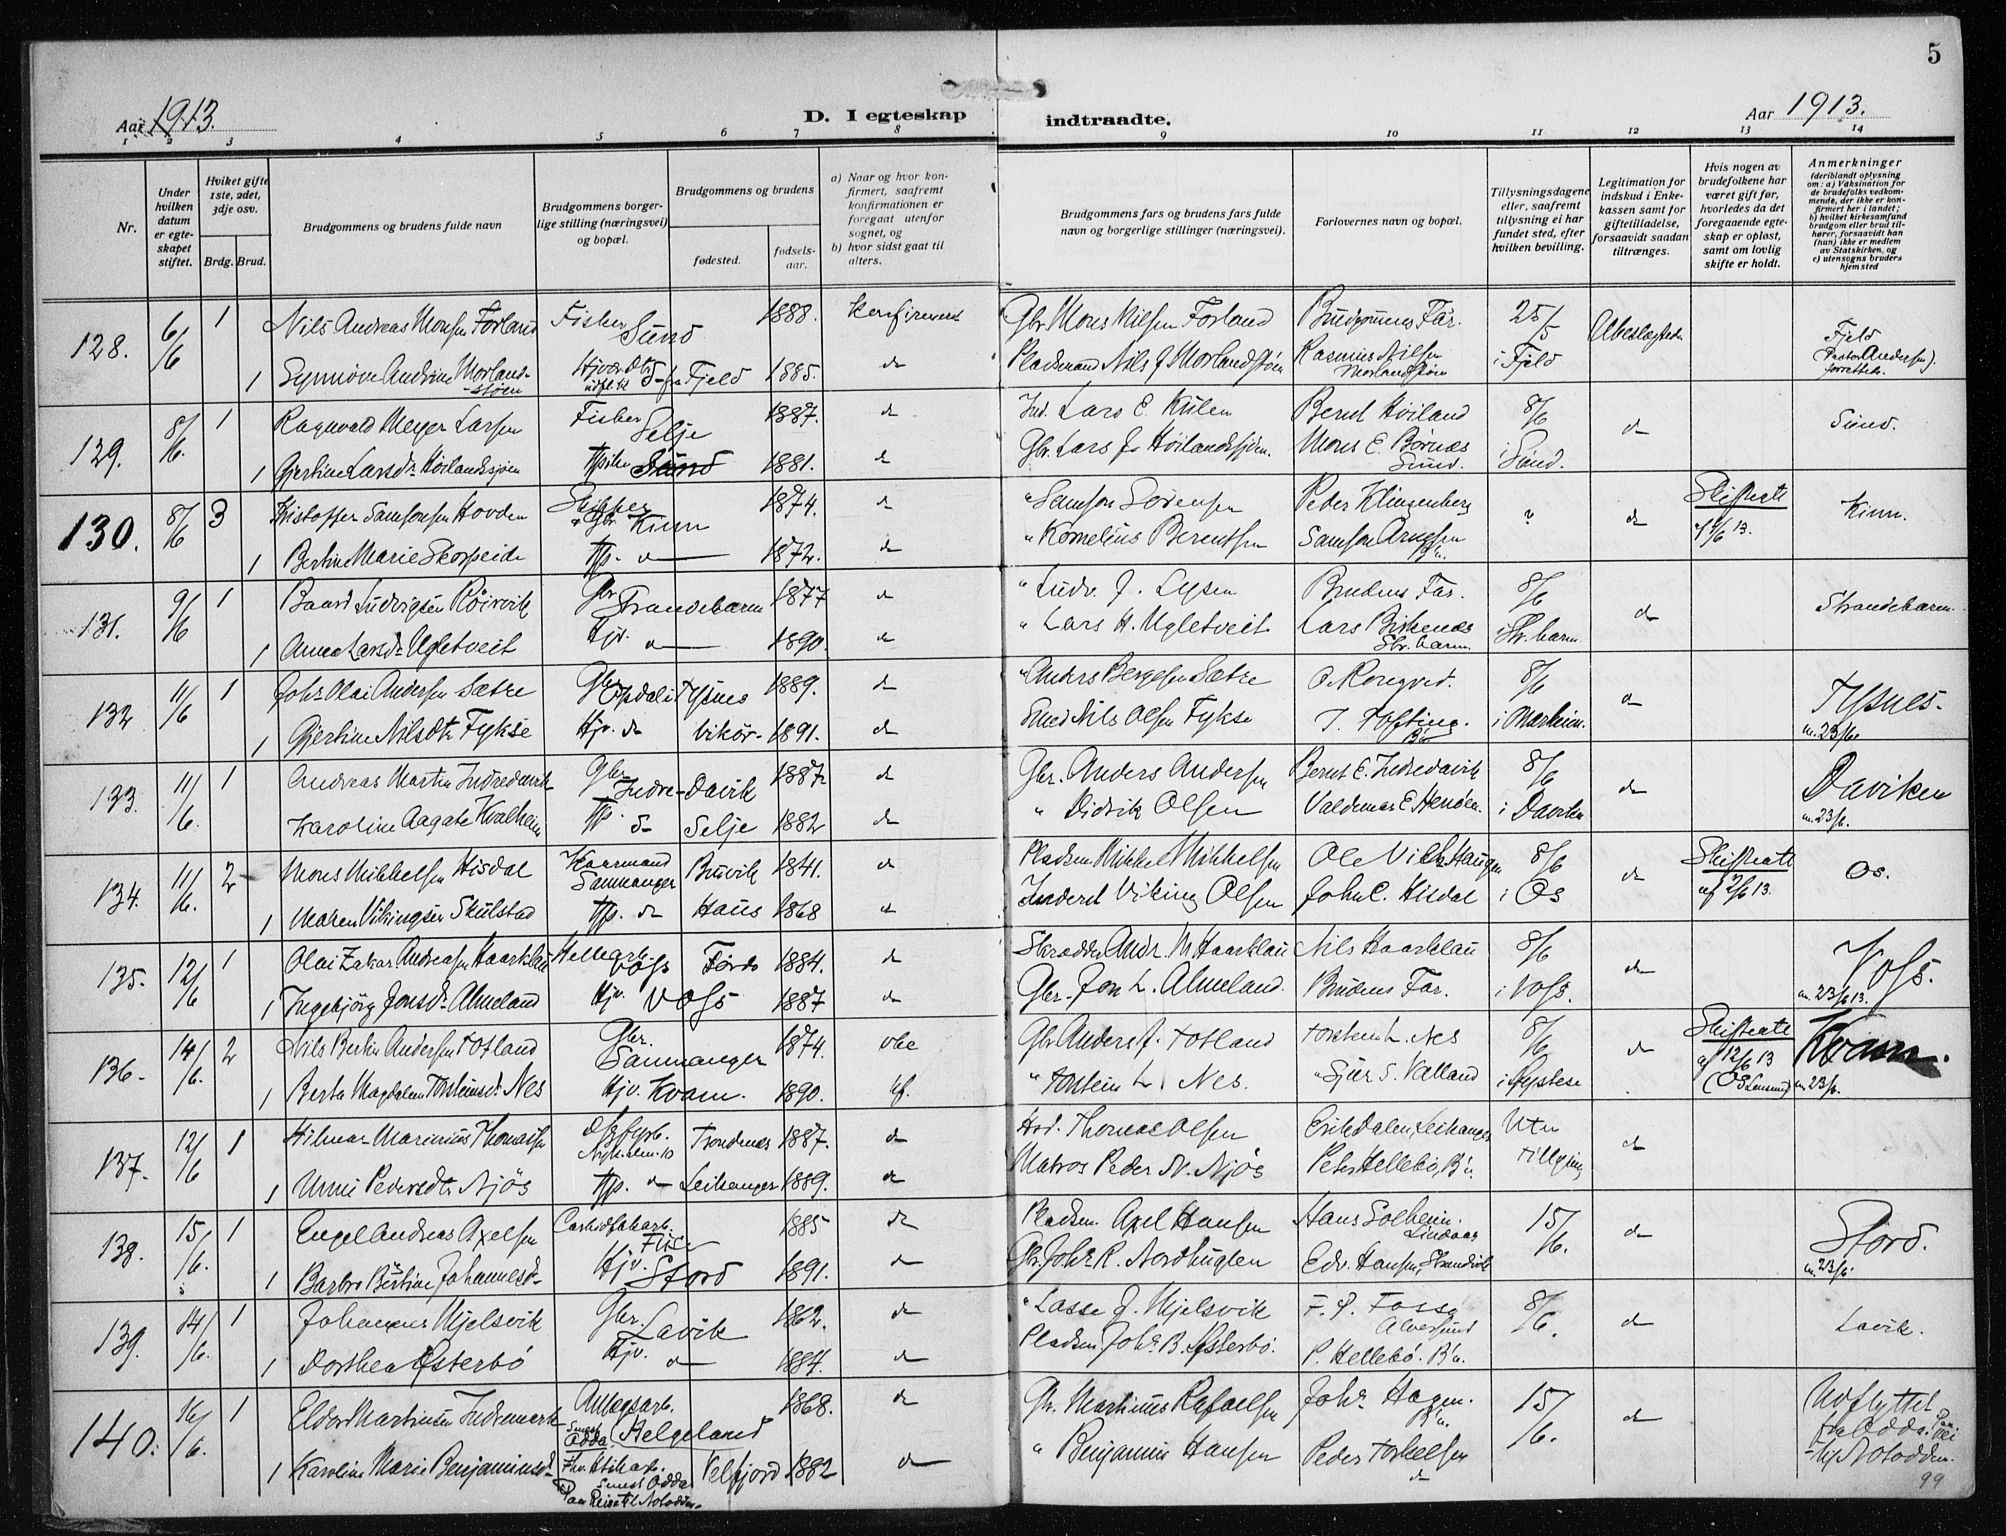 5
Aar 1913.
D. I egteskap
indtraadte.
Aar 1913.
1 2 3 4 5 6 7 8 9 10 11 12 13 14
Nr.
Under hvilken datum er egteskapet stiftet.
Hviket gifte 1ste, 2det, 3dje osv.
Brdg. Brud.
Brudgommens og brudens fulde navn
Brudgommens borgerlige stilling (næringsvei) og bopæl.
Brudgommens og brudens
fødested.
fødselsaar.
a) Naar og hvor konfirmert, saafremt konfirmationen er foregaat utenfor sognet, og
b) hvor sidst gaat til alters.
Brudgommens fars og brudens fars fulde navn og borgerlige stillinger (næringsvei).
Forlovernes navn og bopæl.
Tillysningsdagene eller, saafremt tillysning ei har fundet sted, efter hvilken bevilling.
Legitimation for indskud i Enkekassen samt for giftetilladelse, forsaavidt saadan tiltrænges.
Hvis nogen av brudefolkene har været gift før, hvorledes da det foregaaende egteskap er opløst, samt om lovlig skifte er holdt.
Anmerkninger (deriblandt oplysning om: a) Vaksination for de brudefolks vedkommende, der ikke er konfirmert her i landet; b) hvilket kirkesamfund brudgom eller brud tilhører, forsaavidt han (hun) ikke er medlem av Statskirken, og c) utensogns bruders hjemsted
128. 6/6 1 Nils Andreas Monsen Forland Fisker Sund 1888. Konfirmert Gbr Mons Nilsen Forland Brudgommens Far. 25/5 Ubeslegtede Fjeld
1 Synnøve Andrine Morlandstøen Fjeld 1885. do Pladsmand Nils J Morlandstøen Rasmus Nilsen Morlandstøen i Fjeld (Pastor Andersen) forrettede.
129. 8/6. 1 Ragnvald Meyer Larsen Fisker Selje 1887. do Ind. Lars E. Kulen Bernt Høiland 8/6 do Sund.
1 Gjertine Larsdr Høilandssjøen Sund 1881. do Gbr. Lars J. Høilandssjøen. Mons E. Børnæs Sund. i Sund.
130. 8/6 3 Kristoffer Samsonsen Hovden Skipper Gbr Kinn 1874. do " Samson Sørensen Peder Klingenberg ? do Skifteatt af 4/6 13. Kinn.
1 Bertine Marie Skorpeide Hp. do 1872. do " Kornelius Berentsen Samson Arnesen B'n.
131. 9/6 1 Baard Ludvigsen Röisvik Gbr Strandebarm 1877 do " Ludv. J. Lysen Brudens Far. 8/6 do Strandebarm.
1 Anna Larsdr Ugletveit Hjv. do 1890. do " Lars H. Ugletveit Lars Birkenæs Str. barm. i Str. barm.
132 11/6 1 Johs Olai Andersen Sætre Gbr Opdal i Tysnes 1889. do " Anders Bergesen Sætre O. Rongved. 8/6 do Tysnes.
1 Gjertine Nilsdtr Fykse Hjv. do Vikör. 1891. do Smed Nils Olsen Fykse J. Tofting. B'n i Norheim. m. 23/6.
133. 11/6. 1 Andreas Martin Indredavik Gbr Indre-Davik 1887. do Gbr. Anders Andersen Bernt E. Indredavik 8/6 do Daviken
Karoline Aagate Kvalheim Hp. do Selje 1882 do " Didrik Olsen Valdemar E. Henden. i Daviken m. 23/6.
134. 11/6. 2 Mons Mikkelsen Hisdal Kaarmand Samnanger Bruvik 1841. do Pladsm Mikkel Mikkelsen Ole Nils Haugen 8/6 do Skifteatt af 2/6 13. Os.
1 Maren Vikingsen Skulstad Hp. do Haus 1868 do Inderst Viking Olsen Johs C. Hisdal i Os
135. 12/6 1 Olai Zakar. Andreasen Haarklau Voss Förde 1884. do Skrædder Andr. M Haarklau Nils Haarklau 8/6 do Voss.
1 Ingebjörg Jonsdr Almeland Hjv. Voss 1887 do Gbr. Jon L. Almeland. Brudens Far. i Voss. m. 23/6 13.
136. 14/6. 2 Nils Bertin Andersen Totland Gbr. Samnanger 1874. Gbr Anders J. Totland Torstein L. Nes 8/6 do Skifteatt af 12/6 13 Kvam.
1 Berta Magdalene Torsteinsdr Nes Hjv. Kvam. 1890. " Torstein L. Nes. Sjur S. Valland i Øystese (Os Lensmd) m 23/6.
137. 12/6 1 Hilmar Marinius Thomassen Trondenæs 1887. do Hd. Thomas Olsen Erik Dalen, Leikanger Uten do
1 Unni Pedersdtr Njøs Hp. do Leikanger 1889. do Matros Peder N. Njøs Peter Hellebö, B'n. tillysning
138. 15/6. 1 Engel Andreas Axelsen Carbidfabarb. Fus. 1885 do Pladsm. Axel Hansen Hans Solheim. Lindaas 15/6. do Stord.
1 Barbro Bertine Johannesd. Hjv. Stord 1891. do Gbr. Johs R. Nordhuglen Edv. Hansen, Strandvik m. 23/6.
139. 14/6. 1 Johannes Mjelsvik Gbr. Lavik 1862. do " Lasse J. Mjelsvik F. P. Fosse Alversund 8/6. do Lavik.
1 Dorthea Østerbö Hjv. do 1884. do Pladsm. Johs B. Østerbö. P. Hellebö. B'n.
140. 16/6. 1 Eldor Martinsen Indremark Anlægsarb. Odda. (Helgeland) 1868. do Gbr. Martinus Rafaelsen Johs Hagen. B'n. 15/6. do Utflyttet fra Odda.
1 Karoline Marie Benjaminsd. Odda Velfjord 1882 do " Benjamin Hansen Peder Torkelsen do Notodden.
Paa Reise til Notodden.
99